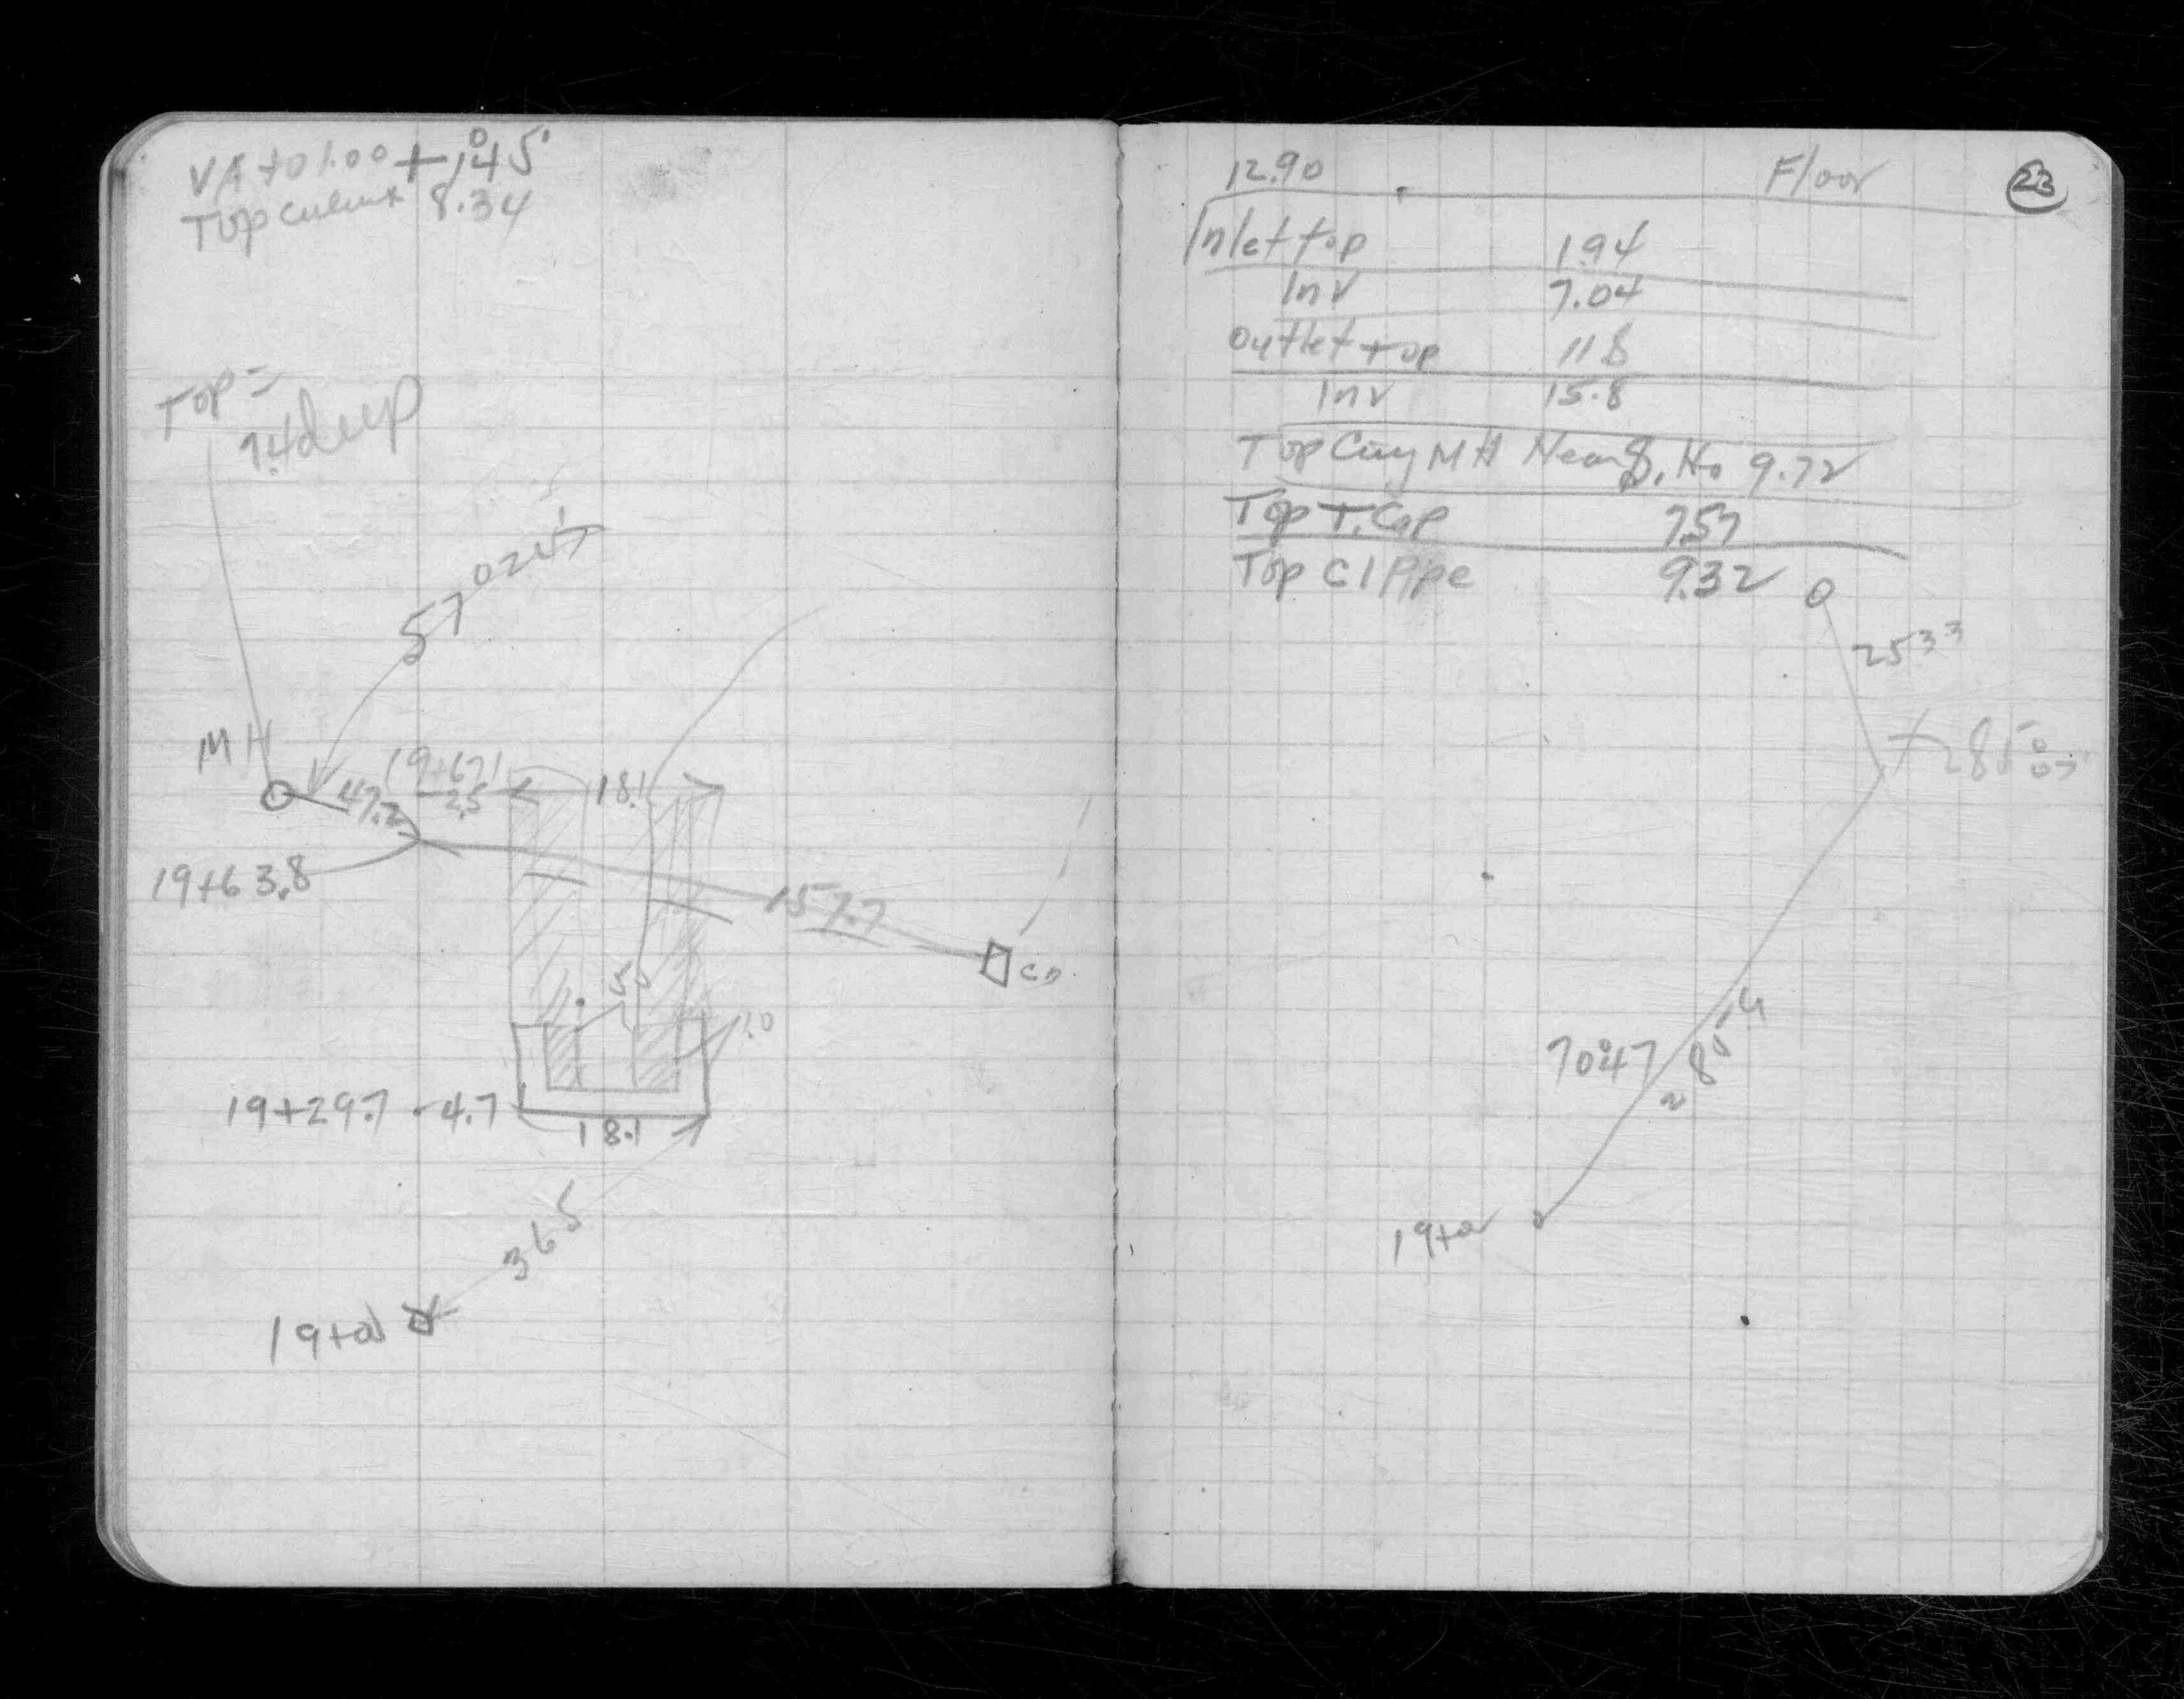 VA to 1.00 + 1°45'
Top culvert 8.34
Top =
7.4 deep
57°02
MH
19+67.1
47.2
2.5
18.1
19+63.8
157.7
5.5
19+29.7 - 4.7
18.1
36.5
12.90 Floor
23
Inlet top 1.94
Inv 7.04
Outlet top 11.8
Inv 15.8
Top City MH Near 9.72
Top T. Cap 7.57
Top CI Pipe 9.32
2533
70°47